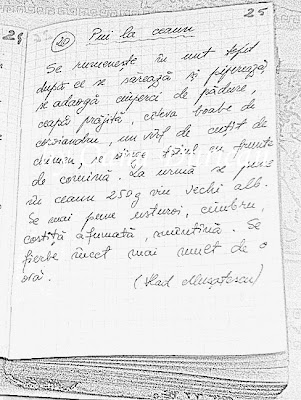 25
29
20 Pui la ceaun
Se rumenește în unt topit
după ce se sarează și piperează,
se adaogă ciuperci de pădure,
ceapă prăjită, câteva boabe de
coriandru, un vârf de cuțit de
chimen, se stinge totul cu frunze
de comină. La urmă se pune
în ceaun 250 g vin vechi alb.
Se mai pune usturoi, cimbru,
costiță afumată, smântână. Se
fierbe încet mai mult de o
oră.
(Vlad Mușatescu)